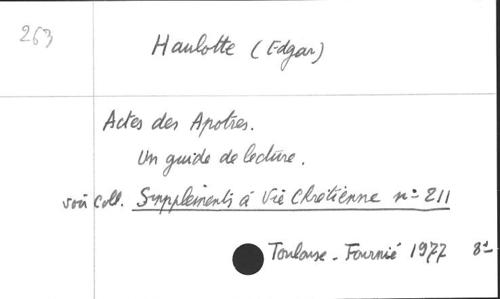 263
Haulotte (Edgar)
Actes des Apotres.
Un guide de lecture.
voir Coll. Suppléments à Vie Chrétienne n° 211
Toulouse - Fournié 1977 8°